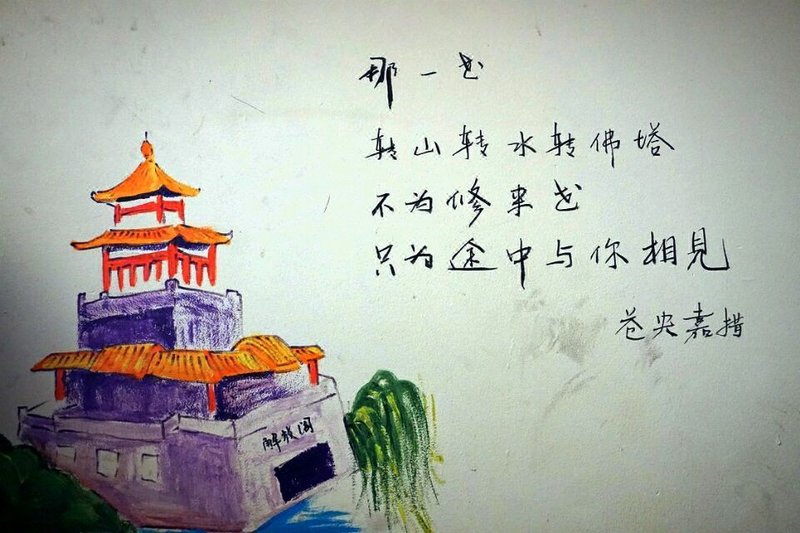 那一世
转山转水转佛塔
不为修来世
只为途中与你相見
苍央嘉措
解放阁